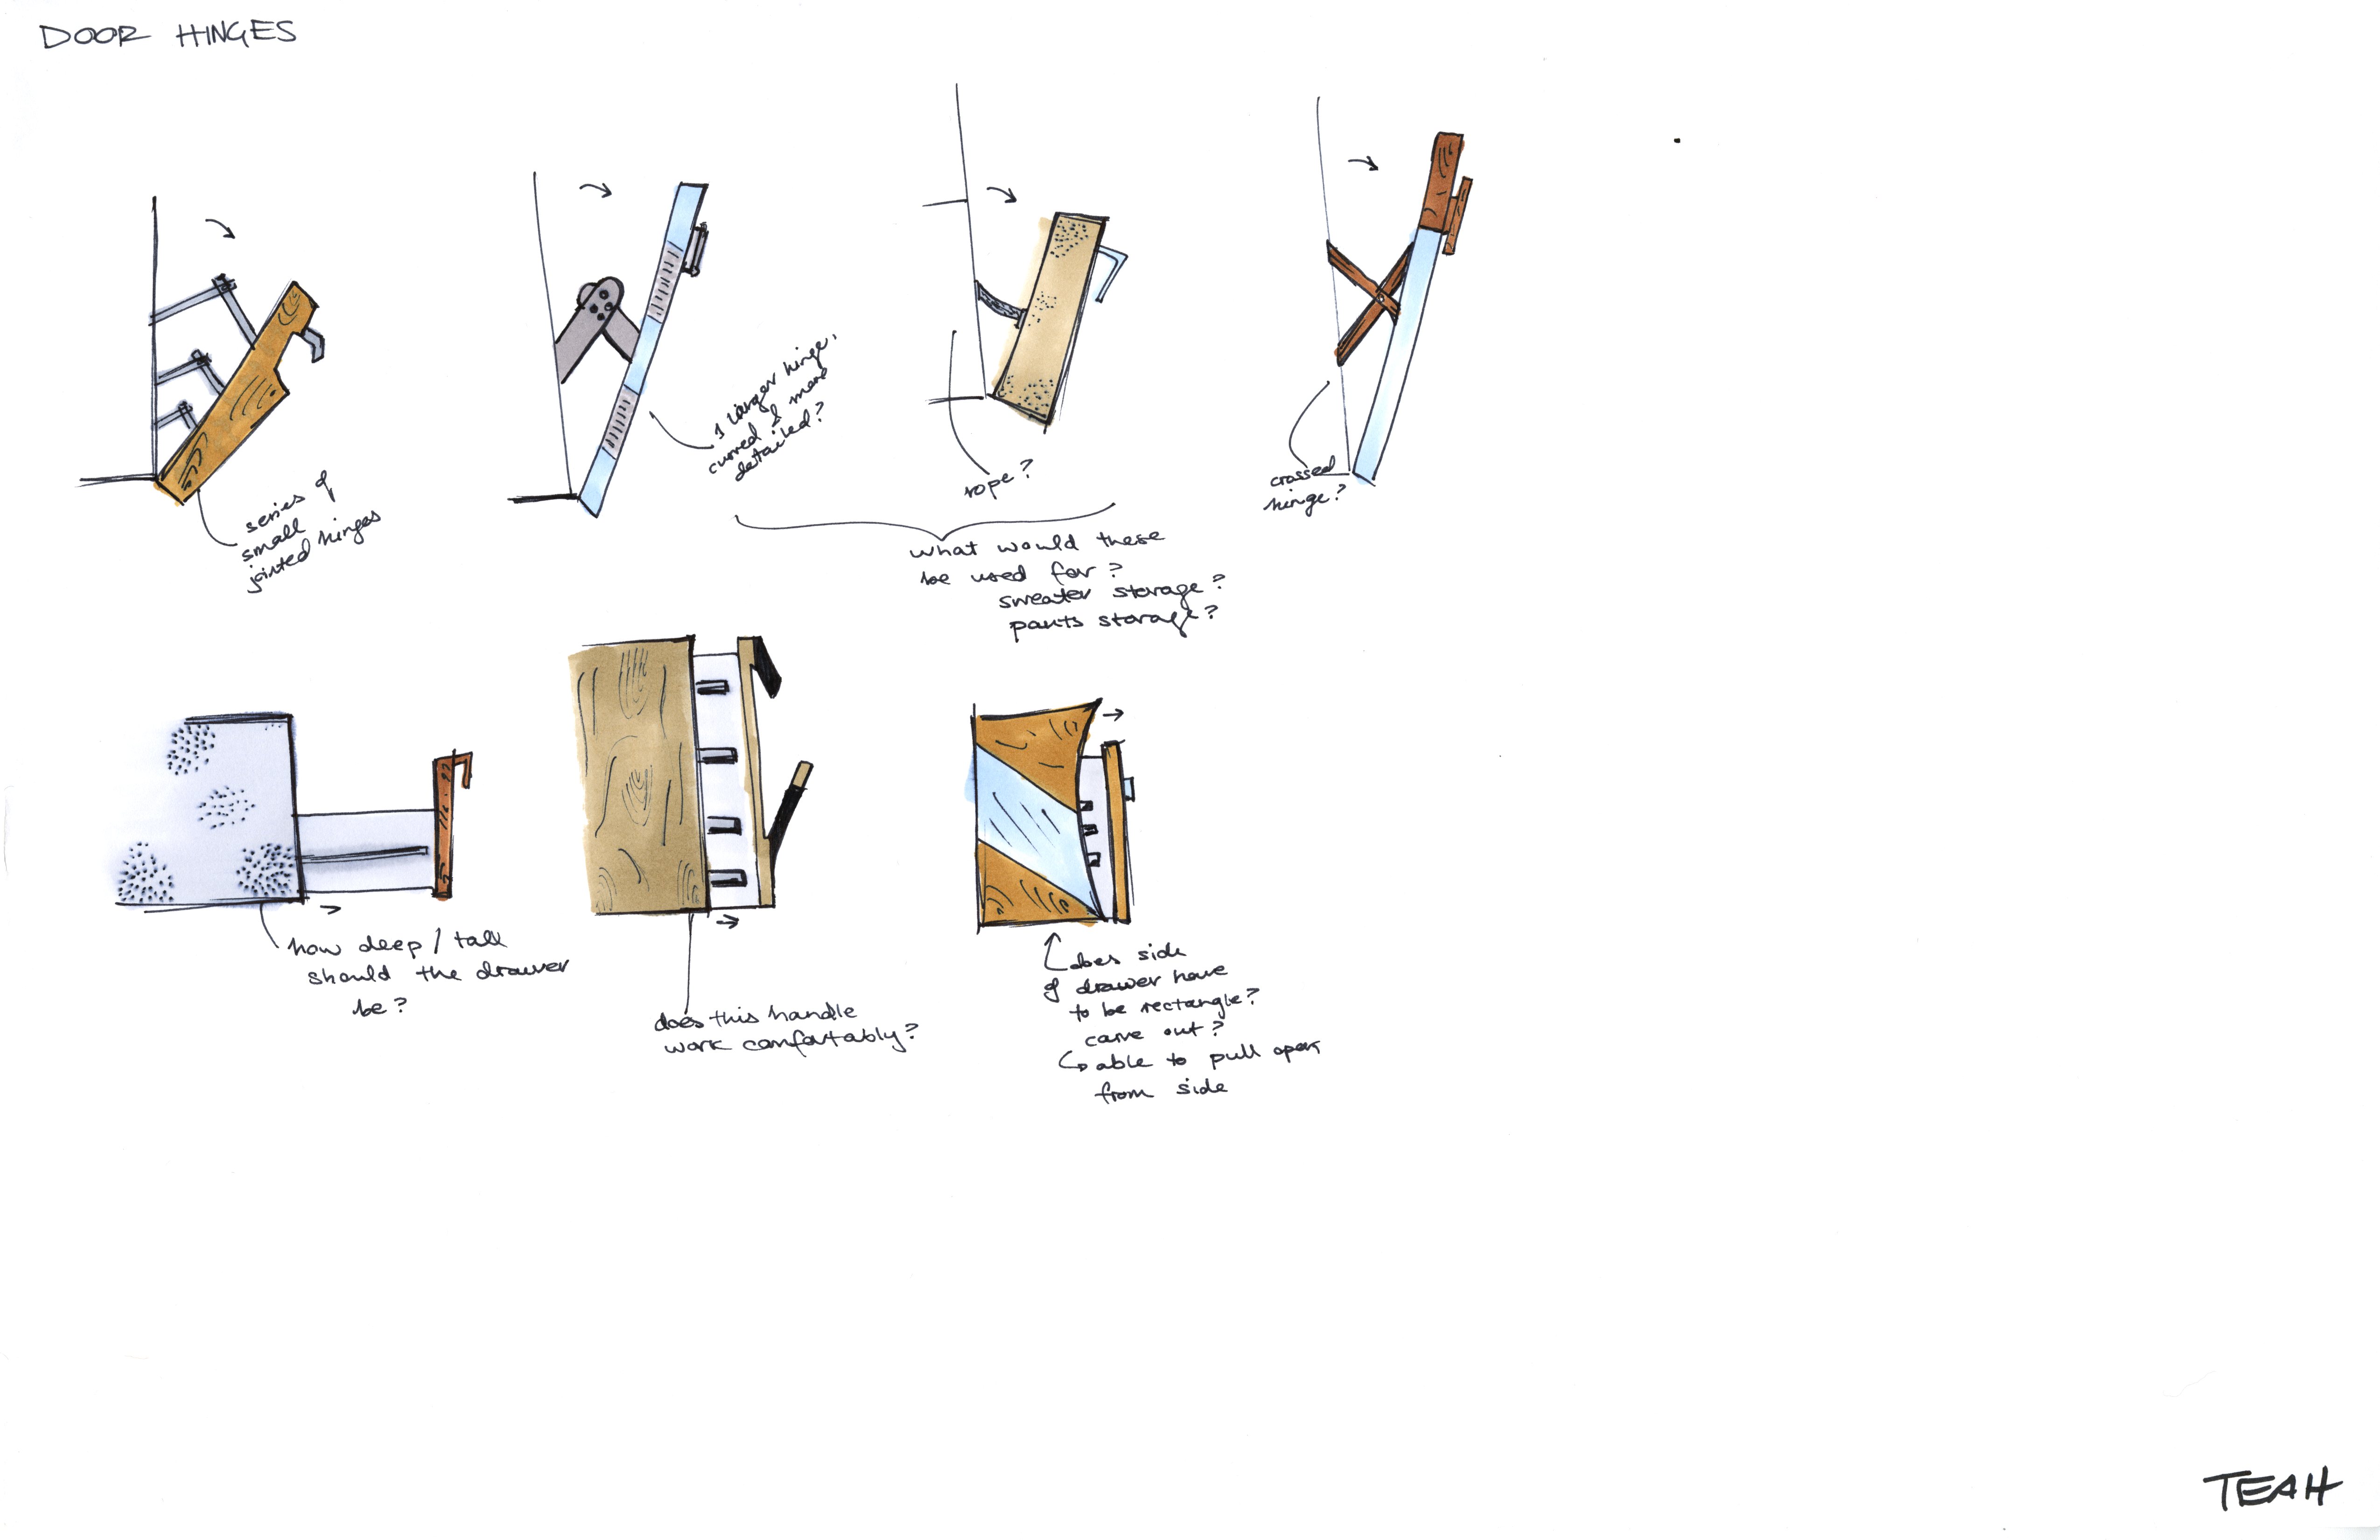 DOOR HINGES
series of
small
jointed hinges
1 larger hinge,
curved & more
detailed?
rope?
crossed
hinge?
what would these
be used for?
sweater storage?
pants storage?
how deep / tall
should the drawer
be?
does this handle
work comfortably?
does side
of drawer have
to be rectangle?
carve out?
↳ able to pull open
from side
TEAH